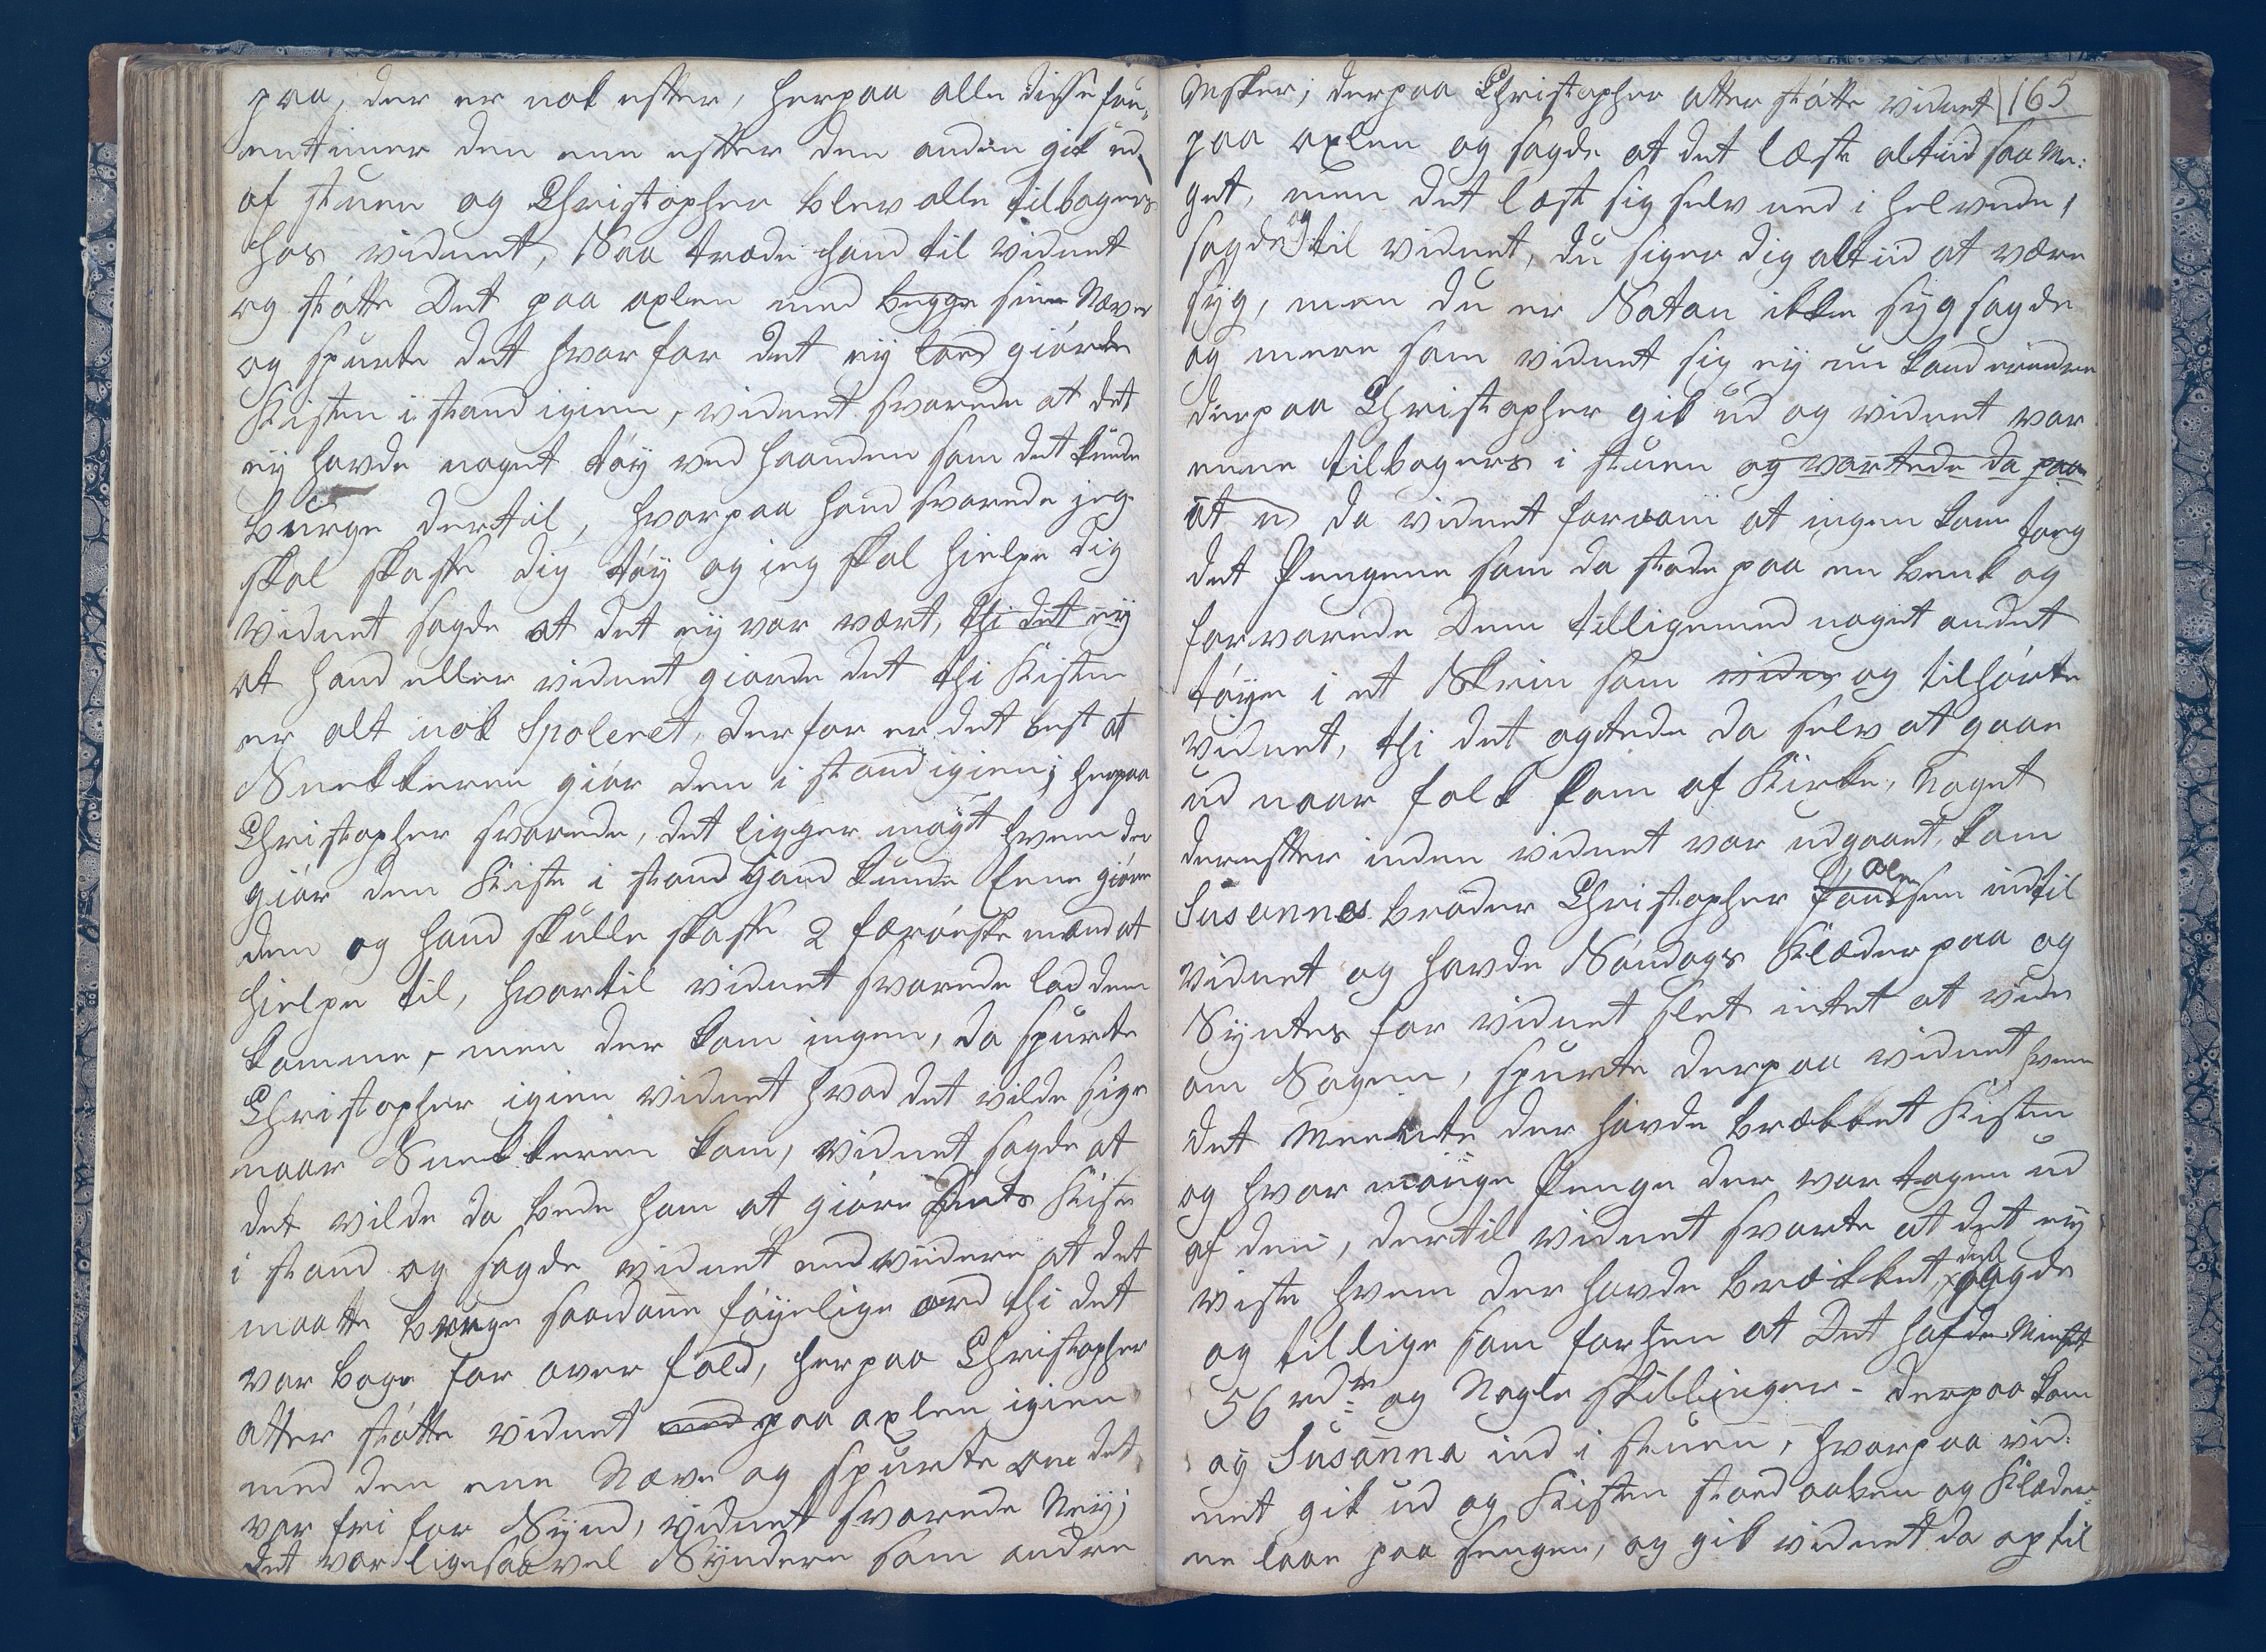 paa, der er nok efter, herpaa alle disse fru„
entimer den ene efter den anden gik ud
af stuen og Christopher blev alle tilbagers
hos vidnet, Saa træde hand til vidnet
og støtte Det paa axlen med begge sine Næver
og spurte det hvorfor det ey loed giørde
Kisten i stand igien, vidnet svarede at det
ey havde noget tøy ved haanden som det kunde
bruge dertil, hvorpaa hand svarede jeg
skal skaffe dig tøy og ieg skal hielpe dig
vidnet sagde at det ey var vært, thi det ey
at hand eller vidnet giorde det thi Kisten
er alt nok Spoleret, derfor er det best at
Snekkeren giør den i stand igien; herpaa
Christopher svarede, det ligger møget hvem der
giør den Kiste i stand hand kunde Eene giøre
den og hand skulle skaffe 2 færøeske mænd at
hielpe til, hvortil vidnet svarede lad dem
komme, men der kom ingen, da spurte
Christopher igien vidnet hvad det vilde sige
naar Snekkeren kom, vidnet sagde at
det vilde da bede ham at giøre Dets Kiste
i stand og sagde vidnet endviidere at det
maatte bruge saadane føyelige ord thi det
var bage for over fald, herpaa Christopher
atter støtte vidnet med paa axlen igien
med den ene Næve og spurte om det
var fri for Synd, vidnet svarede Neij;
det var ligesaavel Syndere som andre
Msker; derpaa Christopher atter støtte vidnet 165
paa axlen og sagde at det læste altiid saa Me:
get, men det læst sig selv ned i helvede,
sagde og til vidnet, du siger dig altiid at være
syg, men du er Satan ikke syg sagde
og mere som vidnet sig ey nu kand erindre
derpaa Christopher gik ud og vidnet var
eene tilbagers i stuen og vartede da paa
at n da vidnet fornam at ingen kom torg
det Pengene som da stode paa en benk og
forvarede Dem tilligemed noget andet
tøye i et Skrin som vidn og tilhørte
vidnet, thi det agtede da selv at gaae
ud naar folk kom af Kirke, Noget
derefter inden vidnet var udgaaet, kom
Susannes broder Christopher Joensen Olen ind til
vidnet og havde Søndags Klæder paa og
Syntes for vidnet slet intet at vide
om Sagen, spurte derpaa vidnet hvem
det Meente der havde brækket Kisten
og hvor mange Penge der var tagen ud
af den, dertil vidnet svarte at det ey
viste hvem der havde brækket, det sagde
og tillige som forhen at Det hafde Mistet
56 rdr: og Nogle skillinger - derpaa kom
og Susanna ind i stuen, hvorpaa vid:
net gik ud og Kisten stoed aaben og Klæder:
ne laae paa sengen, og gik vidnet da op til